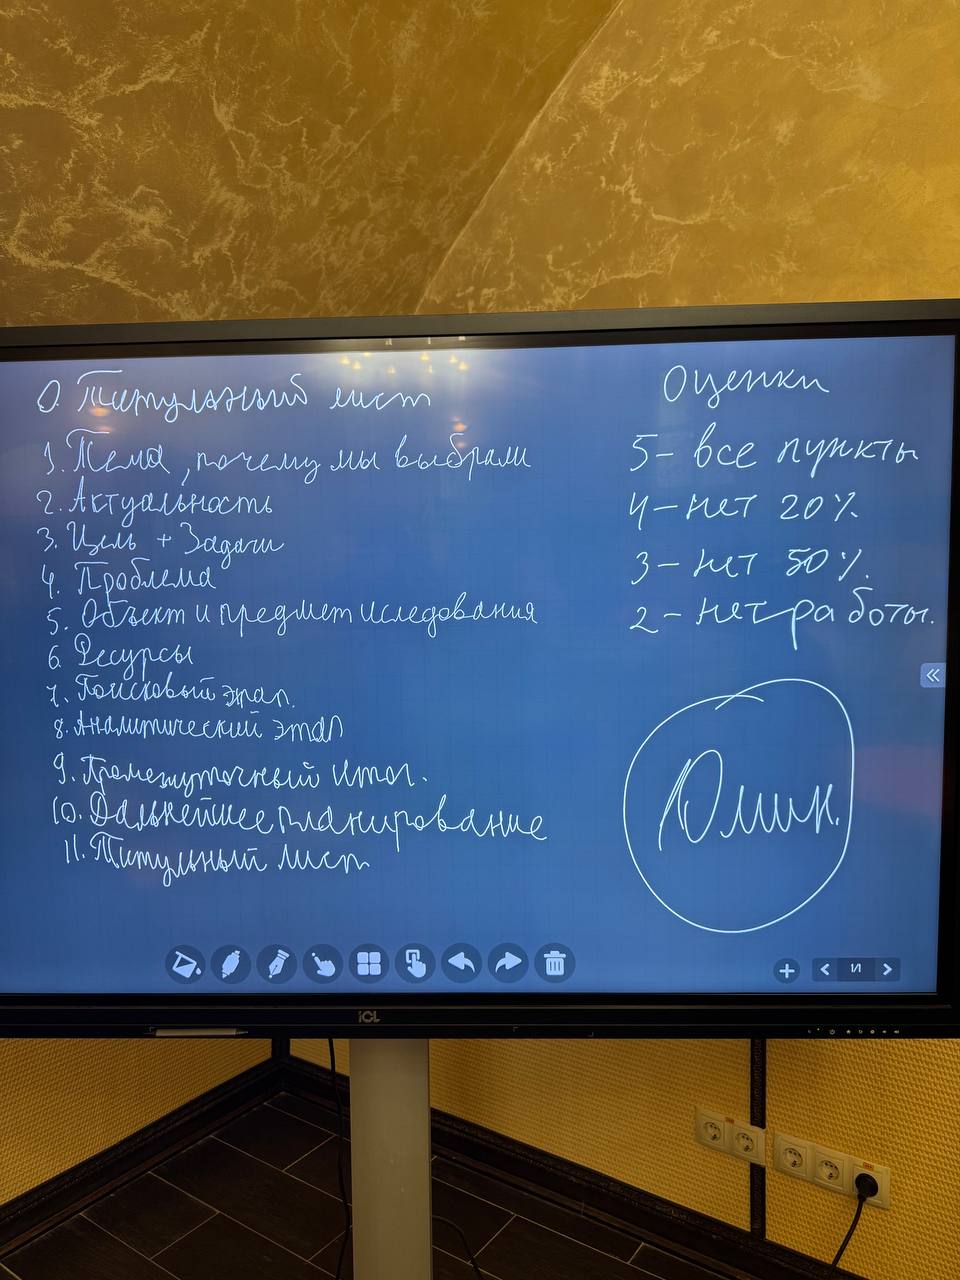 0. Титульный лист
1. Тема, почему мы выбрали
2. Актуальность
3. Цель + Задачи
4. Проблема
5. Объект и предмет иследования
6. Ресурсы
7. Поисковый этап.
8. Аналитический этап
9. Промежуточный итог.
10. Дальнейшее планирование
11. Титульный лист
Оценки
5 - все пункты
4 - нет 20%
3 - нет 50%.
2 - нет работы.
10 мин.
1/1
iCL